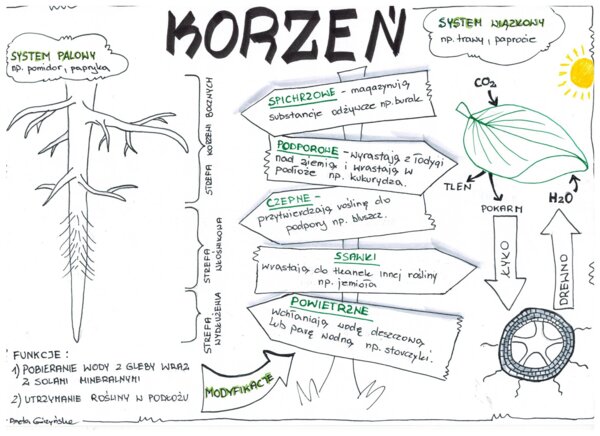 KORZEŃ
SYSTEM PALOWY
np. pomidor, papryka
SYSTEM WIĄZKOWY
np. trawy, paprocie
STREFA KORZENI BOCZNYCH
STREFA WŁOŚNIKOWA
STREFA WYDŁUŻENIA
SPICHRZOWE - magazynują
substancje odżywcze np. burak
PODPOROWE - wyrastają z łodygi
nad ziemią i wrastają w
podłoże np. kukurydza.
CZEPNE -
przytwierdzają roślinę do
podpory np. bluszcz.
SSAWKI
wrastają do tkanek innej rośliny
np. jemioła
POWIETRZNE
Wchłaniają wodę deszczową
lub parę wodną np. storczyki.
MODYFIKACJE
CO2
TLEN
POKARM
H2O
ŁYKO
DREWNO
FUNKCJE:
1) POBIERANIE WODY Z GLEBY WRAZ
Z SOLAMI MINERALNYMI
2) UTRZYMANIE ROŚLINY W PODŁOŻU